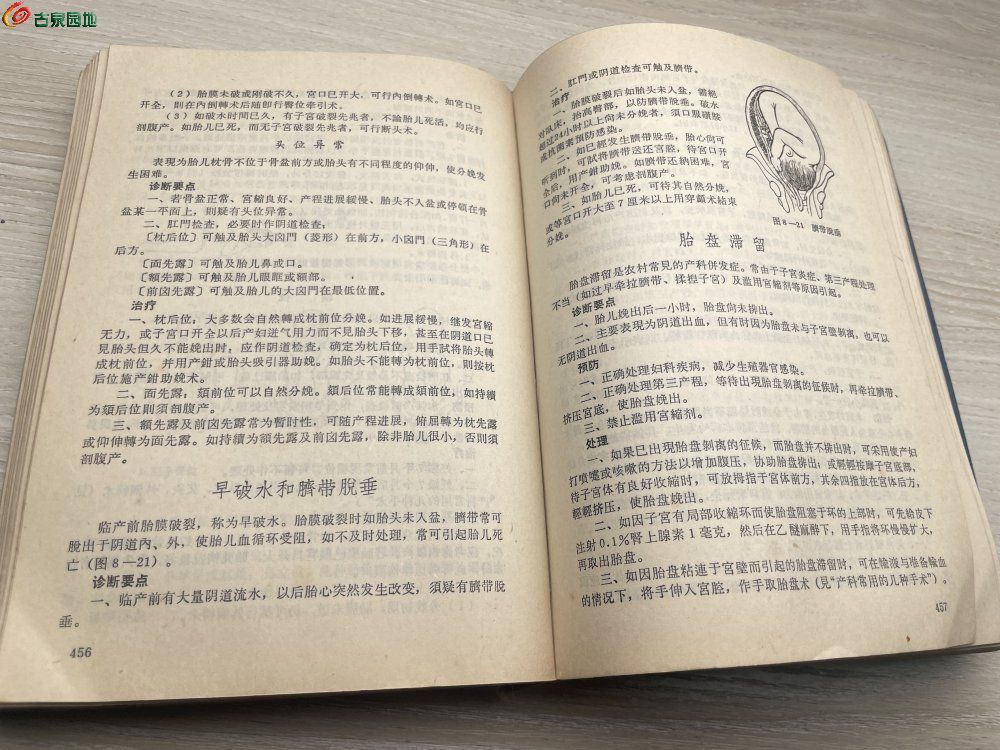 古泉园地
（2）胎膜未破或刚破不久，宮口已开大，可行內倒轉术。如宮口已
开全，則在內倒轉术后随即行臀位牵引术。
（3）如破水时間已久，有子宮破裂先兆者，不論胎儿死活，均应行
剖腹产。如胎儿已死，而无子宮破裂先兆者，可行断头术。
头位异常
表現为胎儿枕骨不位于骨盆前方或胎头有不同程度的仰伸，使分娩发
生困难。
诊断要点
一、若骨盆正常、宮縮良好、产程进展緩慢、胎头不入盆或停頓在骨
盆某一平面上，則疑有头位异常。
二、肛門检查，必要时作阴道检查：
〔枕后位〕可触及胎头大囟門（菱形）在前方，小囟門（三角形）在
后方。
〔面先露〕可触及胎儿鼻或口。
〔額先露〕可触及胎儿眼眶或額部。
〔前囟先露〕可触及胎儿的大囟門在最低位置。
治疗
一、枕后位，大多数会自然轉成枕前位分娩。如进展緩慢，继发宮縮
无力，或子宮口开全以后产妇迸气用力而不見胎头下移，甚至在阴道口已
見胎头但久不能娩出时；应作阴道检查，确定为枕后位，用手試将胎头轉
成枕前位，并用产鉗或胎头吸引器助娩。如胎头不能轉为枕前位，則按枕
后位施产鉗助娩术。
二、面先露：頦前位可以自然分娩。頦后位常能轉成頦前位，如持續
为頦后位則須剖腹产。
三、額先露及前囟先露常为暫时性，可随产程进展，俯屈轉为枕先露
或仰伸轉为面先露。如持續为額先露及前囟先露，除非胎儿很小，否則須
剖腹产。
早破水和臍带脫垂
临产前胎膜破裂，称为早破水。胎膜破裂时如胎头未入盆，臍带常可
脫出于阴道內、外，使胎儿血循环受阻，如不及时处理，常可引起胎儿死
亡（图8—21）。
诊断要点
一、临产前有大量阴道流水，以后胎心突然发生改变，須疑有臍带脫
垂。
456
二、肛門或阴道检查可触及臍带。
治疗
一、胎膜破裂后如胎头未入盆，需絕
对臥床，抬高臀部，以防臍带脫垂。破水
超过24小时以上尚未分娩者，須口服磺胺
或抗菌素預防感染。
二、如已經发生臍带脫垂，胎心尚可
听到时，可試将臍带送还宮腔，待宮口开
全后，用产鉗助娩。如臍带还納困难，宮
口尚未开全，可考虑剖腹产。
三、如胎儿已死，可待其自然分娩，
或等宮口开大至7厘米以上用穿顱术結束
分娩。
图8—21 臍带脫垂
胎盘滞留
胎盘滞留是农村常見的产科併发症。常由于子宮炎症、第三产程处理
不当（如过早牵拉臍带、揉揑子宮）及滥用宮縮剂等原因引起。
诊断要点
一、胎儿娩出后一小时，胎盘尚未排出。
二、主要表現为阴道出血，但有时因为胎盘未与子宮壁剝离，也可以
无阴道出血。
预防
一、正确处理妇科疾病，减少生殖器官感染。
二、正确处理第三产程，等待出現胎盘剝离的征候时，再牵拉臍带、
挤压宮底，使胎盘娩出。
三、禁止滥用宮縮剂。
处理
一、如果已出現胎盘剝离的征候，而胎盘并不排出时，可采用使产妇
打喷嚏或咳嗽的方法以增加腹压，协助胎盘排出；或輕輕按摩子宮底部，
待子宮体有良好收縮时，可放拇指于宮体前方，其余四指放在宮体后方，
輕輕挤压，使胎盘娩出。
二、如因子宮有局部收縮环而使胎盘阻塞于环的上部时，可先給皮下
注射0.1%腎上腺素1毫克，然后在乙醚麻醉下，用手指将环慢慢扩大，
再取出胎盘。
三、如因胎盘粘連于宮壁而引起的胎盘滞留时，可在輸液与准备輸血
的情况下，将手伸入宮腔，作手取胎盘术（見“产科常用的几种手术”）。
457